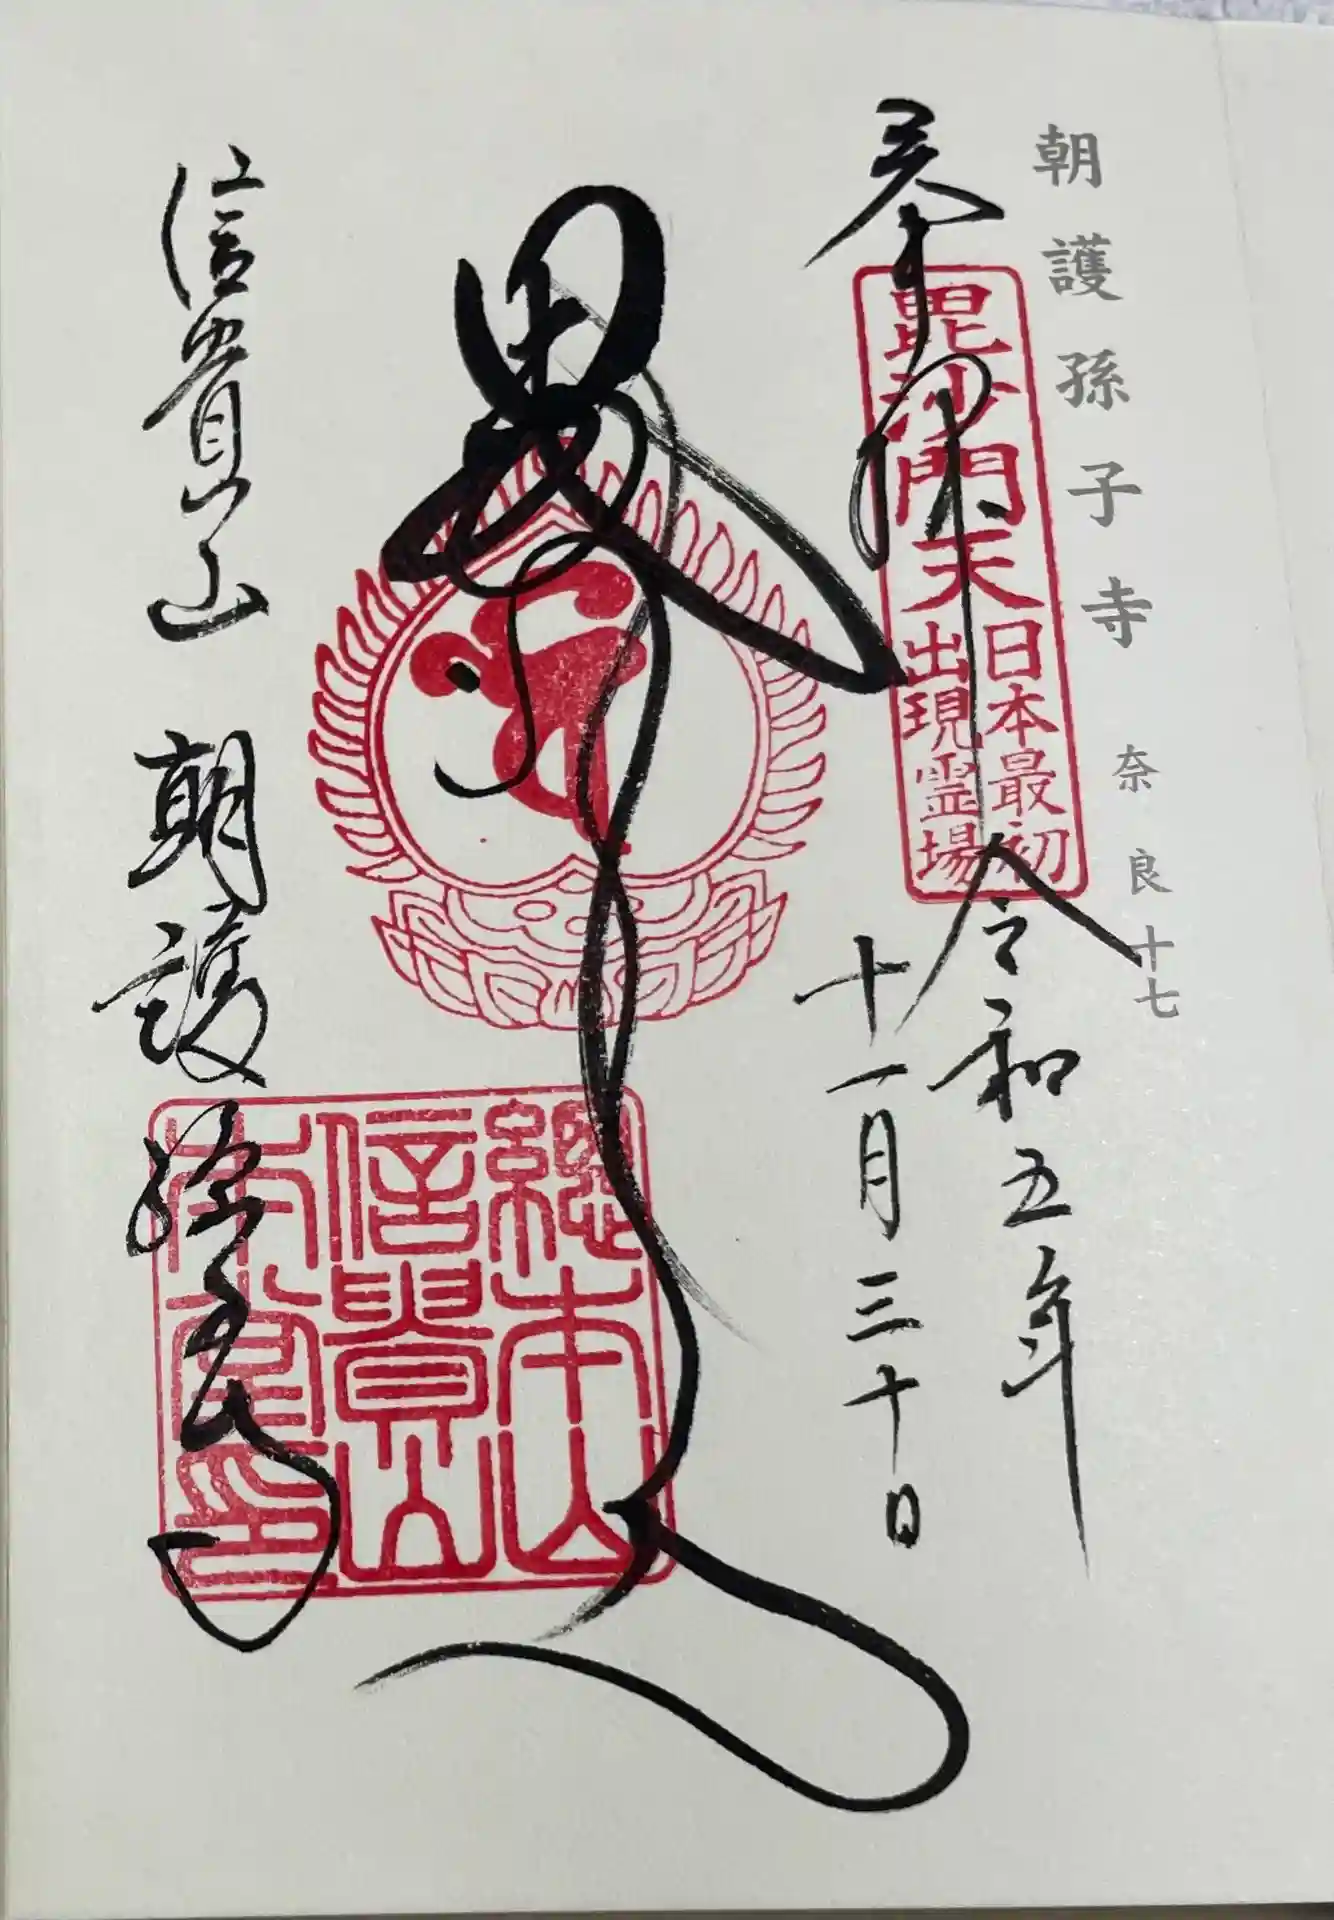 朝護孫子寺 奈良十七
奉拝
毘沙門天
日本最初
出現霊場
令和五年
十一月三十日
總本山
信貴山
本堂印
信貴山 朝護孫子寺